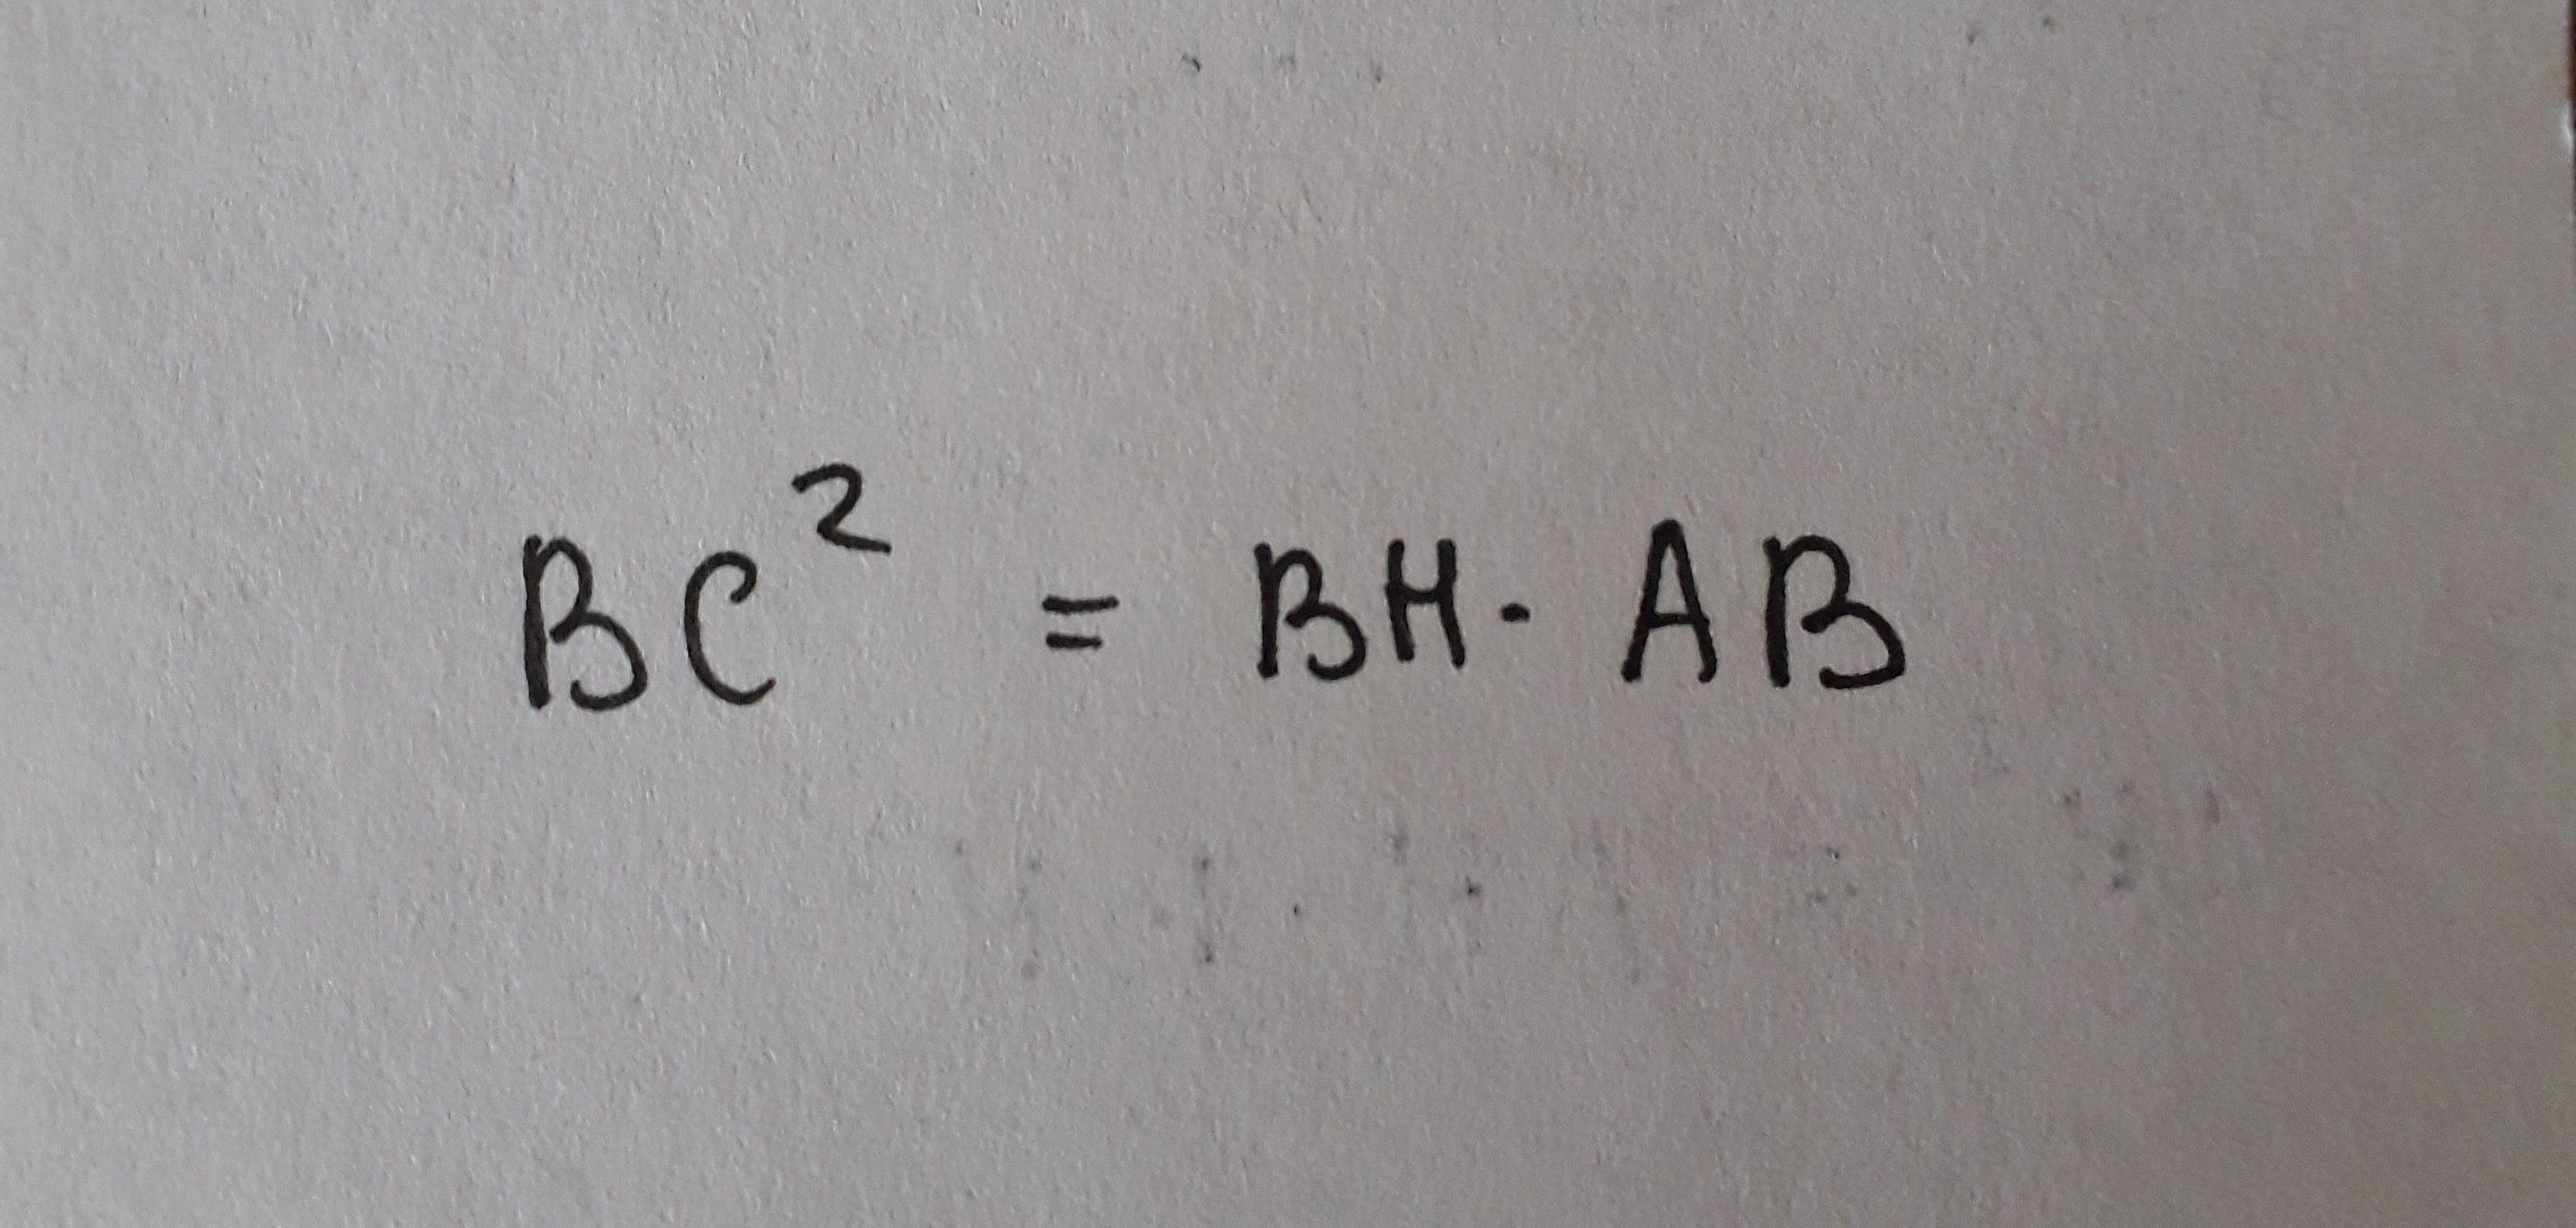 BC² = BH · AB